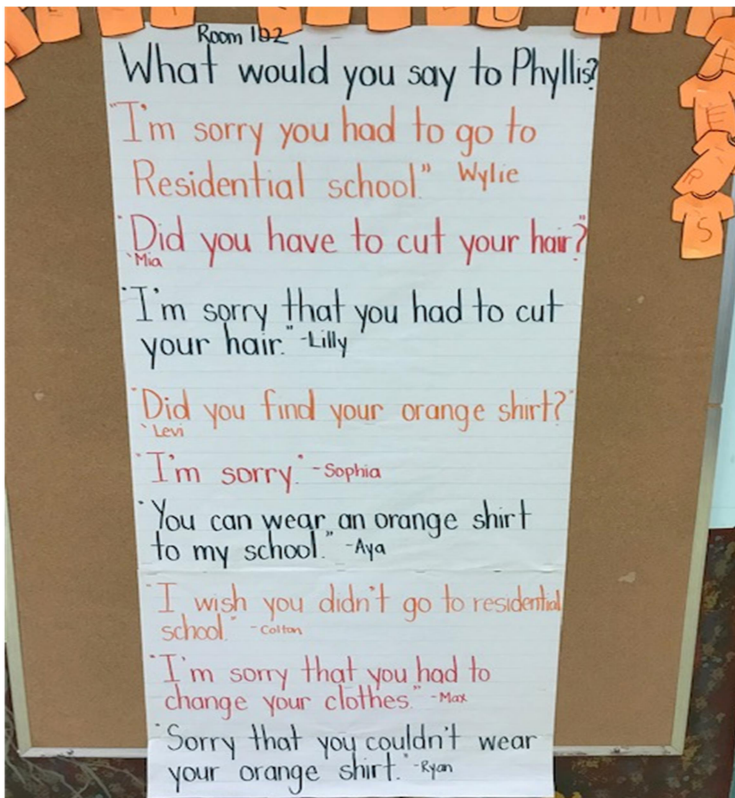 Room 102
What would you say to Phyllis?
"I'm sorry you had to go to
Residential school." Wylie
"Did you have to cut your hair?"
`Mia
"I'm sorry that you had to cut
your hair." -Lilly
"Did you find your orange shirt?"
`Levi
"I'm sorry." -Sophia
"You can wear an orange shirt
to my school." -Aya
"I wish you didn't go to residential
school." -Colton
"I'm sorry that you had to
change your clothes." -Max
"Sorry that you couldn't wear
your orange shirt." -Ryan